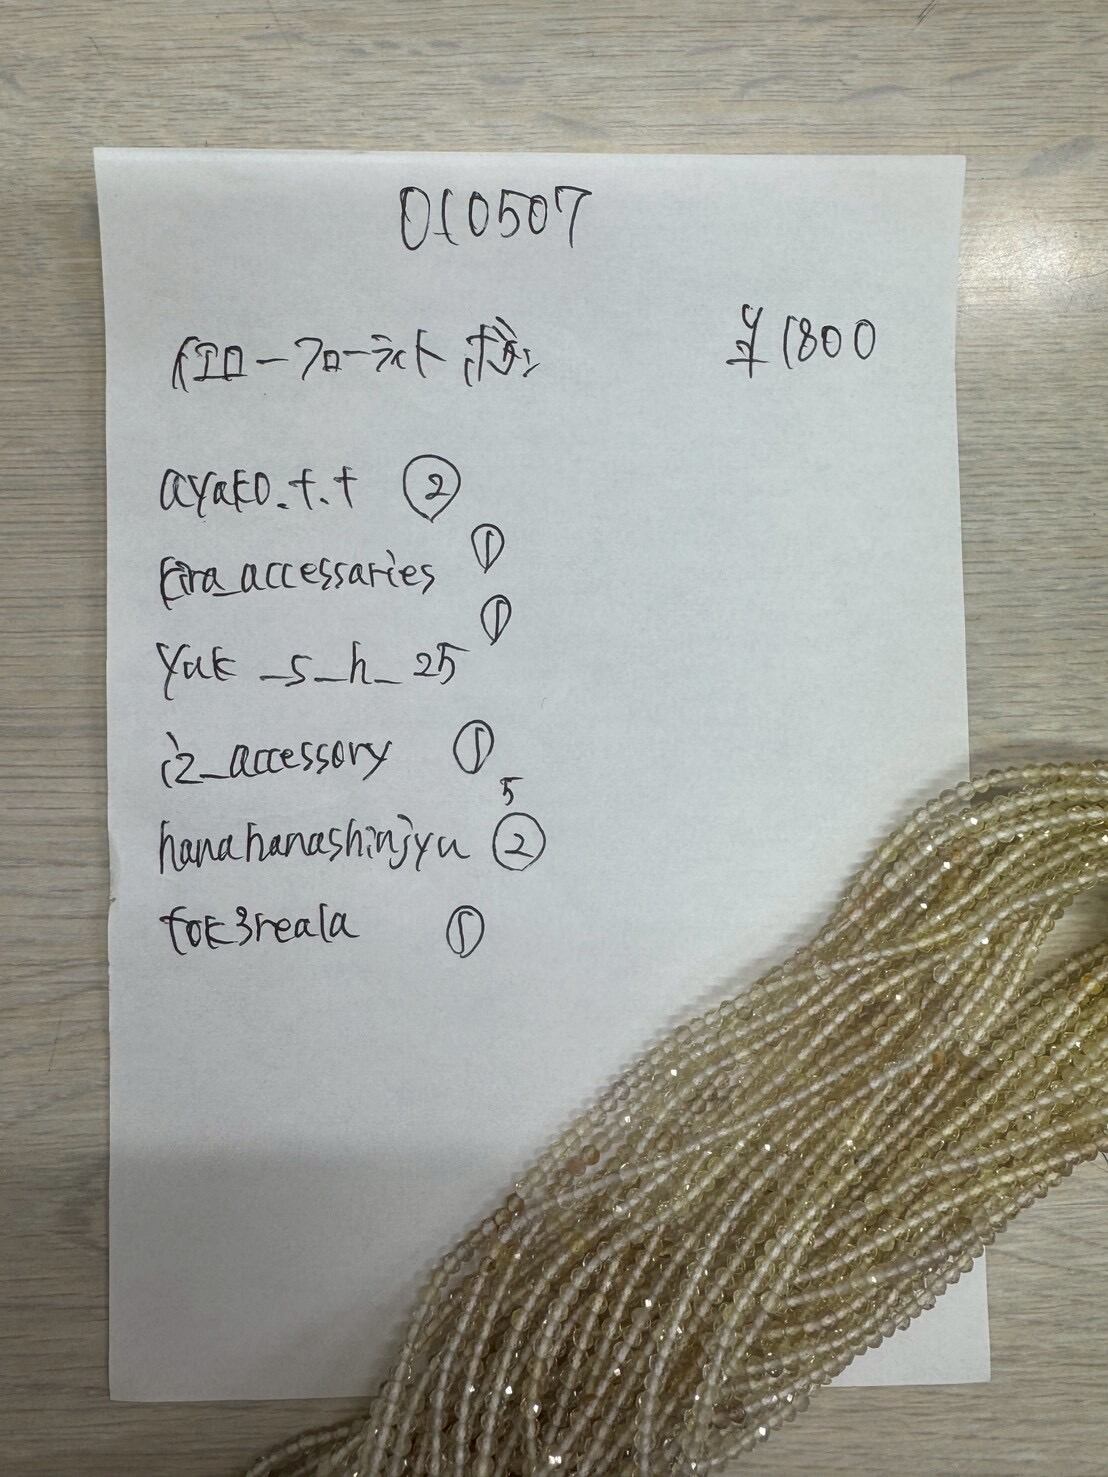 010507
イエローフローライト ボタン ¥1800
ayako.t.t ②
kira_accessaries ①
yuk_s_h_25 ①
iz_accessory ①
5
hanahanashinjyu ②
tok3reala ①